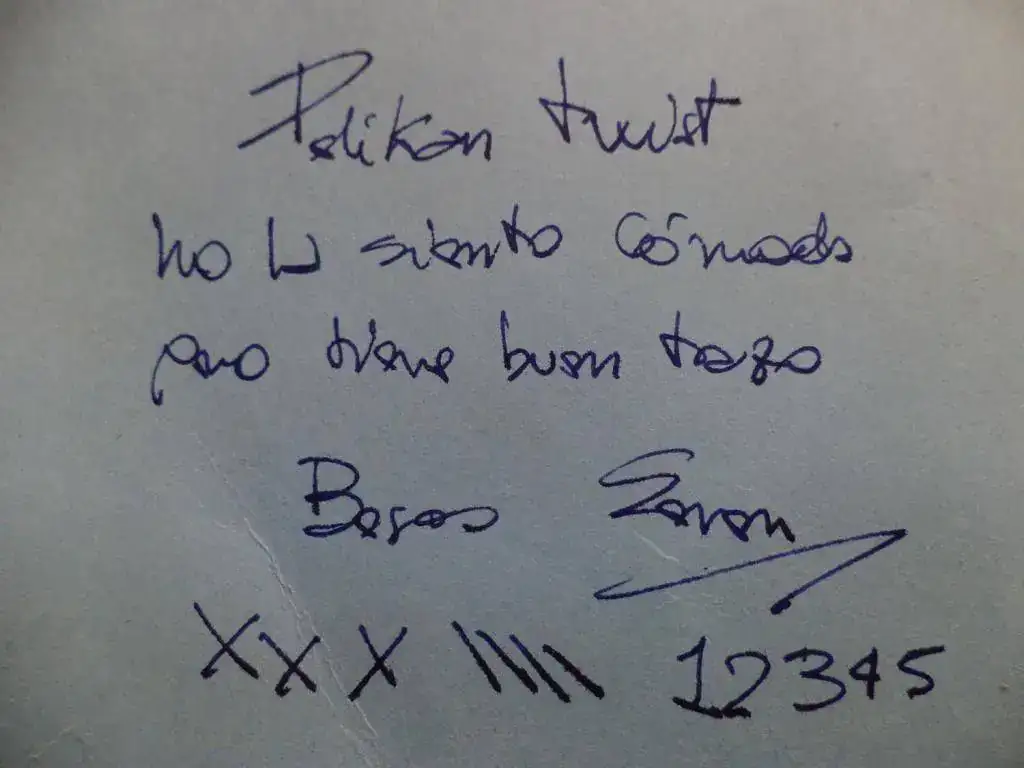 Pelikan twist
no la siento cómoda
pero tiene buen trazo
XXX \\\\ 12345